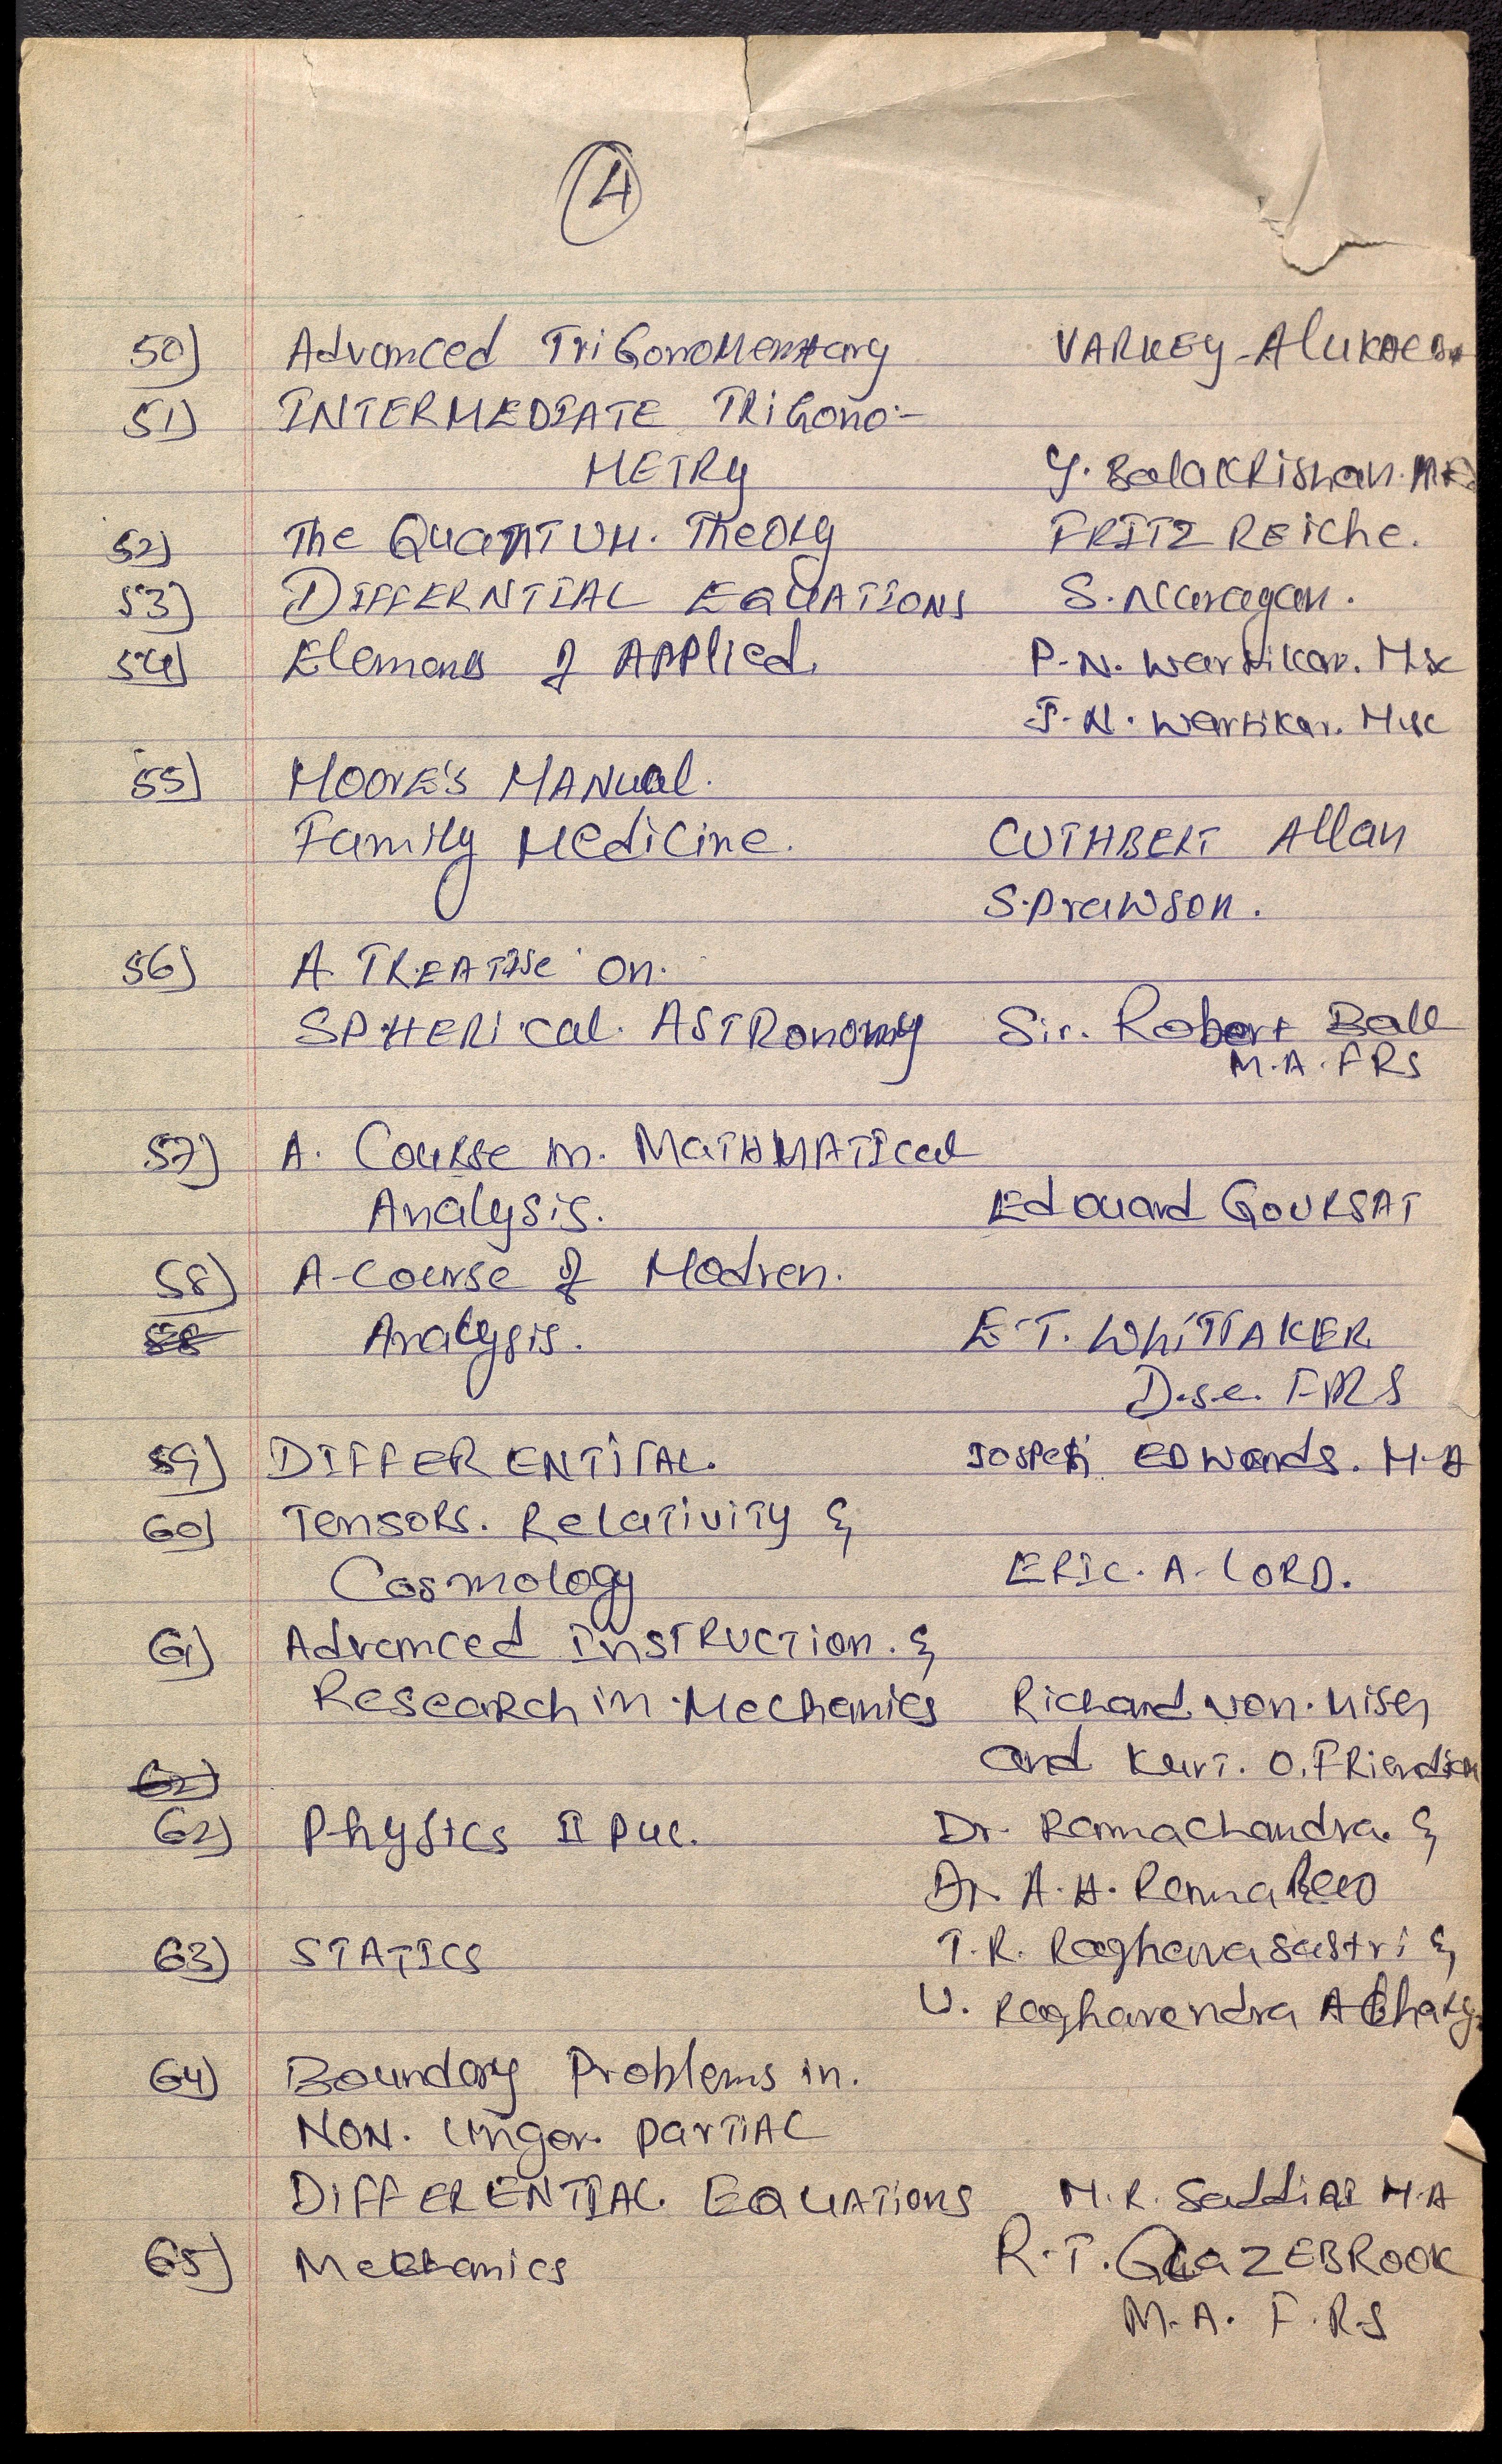 4
50) Advanced TriGonoMentary VARKEY
51) INTERMEDIATE TRiGono:-
METRy Y. BalaKRishan.
52) The QuaNTUM. TheoRy FRITZ REiche.
53) DIFFERNTIAL EQUATIONS S. Narayan.
54) Elements of APPlied. P.N. Wartikar. M.sc
J.N. Wartikar. M.sc
55) MOORE'S MANUal.
Family Medicine. CUTHBERT Allan
S.Prawson.
56) A TREATISe on.
SPHERical. ASTRonomy Sir. Robert Ball
M.A. FRS
57) A. Course in. MATHMATICal
Analysis. Edouard GOURSAT
58) A-Course of Modren.
58 Analysis. E.T. WHiTTAKER
D.s.c. FRS
59) DIFFERENTIAL. JOSPeh EDWards. M.A
60) Tensors. Relativity &
Cosmology ERIC. A. LORD.
61) Advanced InSTRUCTion. &
ReseaRch in Mechanics Richard von. Mises
62) and Kurt. O.
62) Physics II PUC. Dr. Ramachandra. &
Dr. A.H. Rama Rao
63) STATICS T.R. Raghavasastri &
U. Raghavendra AChary.
64) Boundary Problems in.
NON. Linger. PartiAL
DiFFERENTIAL. EQUATions M.R. M.A
65) Mechanics R.T. GLAZEBROOK
M.A. F.R.S